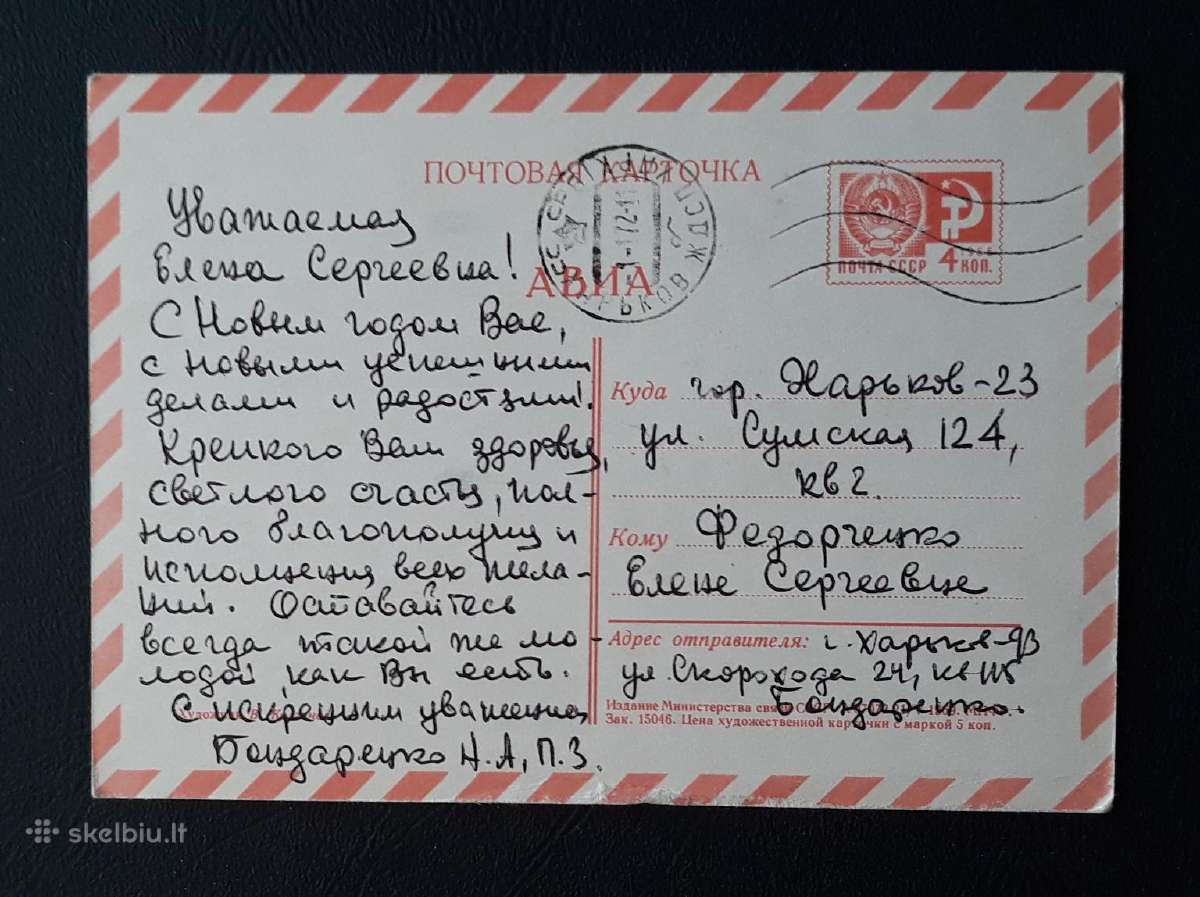 ПОЧТОВАЯ КАРТОЧКА
АВИА
ХАРЬКОВ
ПОЧТА СССР
1966
4 КОП.
Уважаемая
Елена Сергеевна!
С Новым годом Вас,
с новыми успешными
делами и радостями!
Крепкого Вам здоровья,
светлого счастья, пол-
ного благополучия и
исполнения всех жела-
ний. Оставайтесь
всегда такой же мо-
лодой, как Вы есть.
С искренним уважением
Бондаренко Н.А, П.З.
Художник В.
Куда гор. Харьков-23
ул. Сумская 124,
кв 2.
Кому Федорченко
Елене Сергеевне
Адрес отправителя: г. Харьков-93
ул. Скорохода 24, кв
Бондаренко.
Издание Министерства связи
Зак. 15046. Цена художественной карточки с маркой 5 коп.
skelbiu.lt